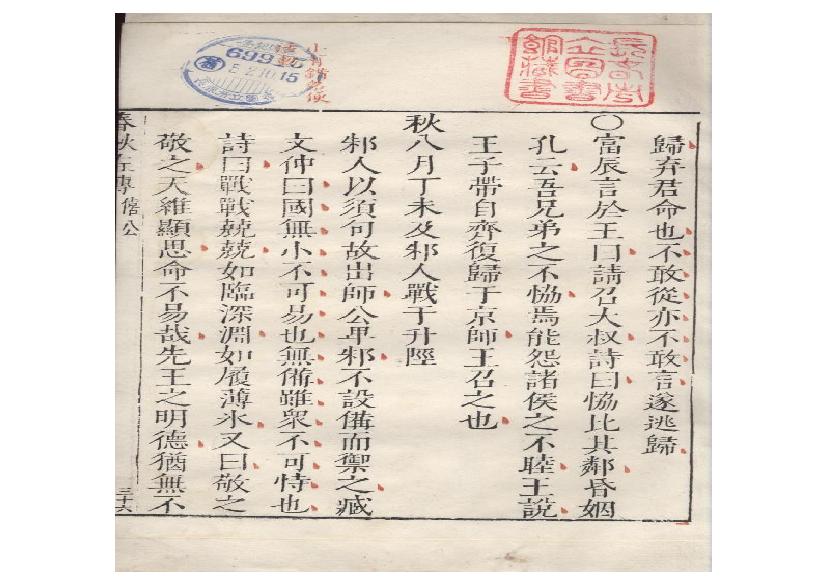 歸弃君命也不敢從亦不敢言遂逃歸
〇富辰言於王曰請召大叔詩曰恊比其鄰昏姻
孔云吾兄弟之不恊焉能怨諸侯之不睦王說
王子帶自齊復歸于京師王召之也
秋八月丁未及邾人戰于升陘
邾人以須句故出師公卑邾不設備而禦之臧
文仲曰國無小不可易也無備雖衆不可恃也
詩曰戰戰兢兢如臨深淵如履薄氷又曰敬之
敬之天維顯思命不易哉先王之明德猶無不
春秋左傳僖公
三十六